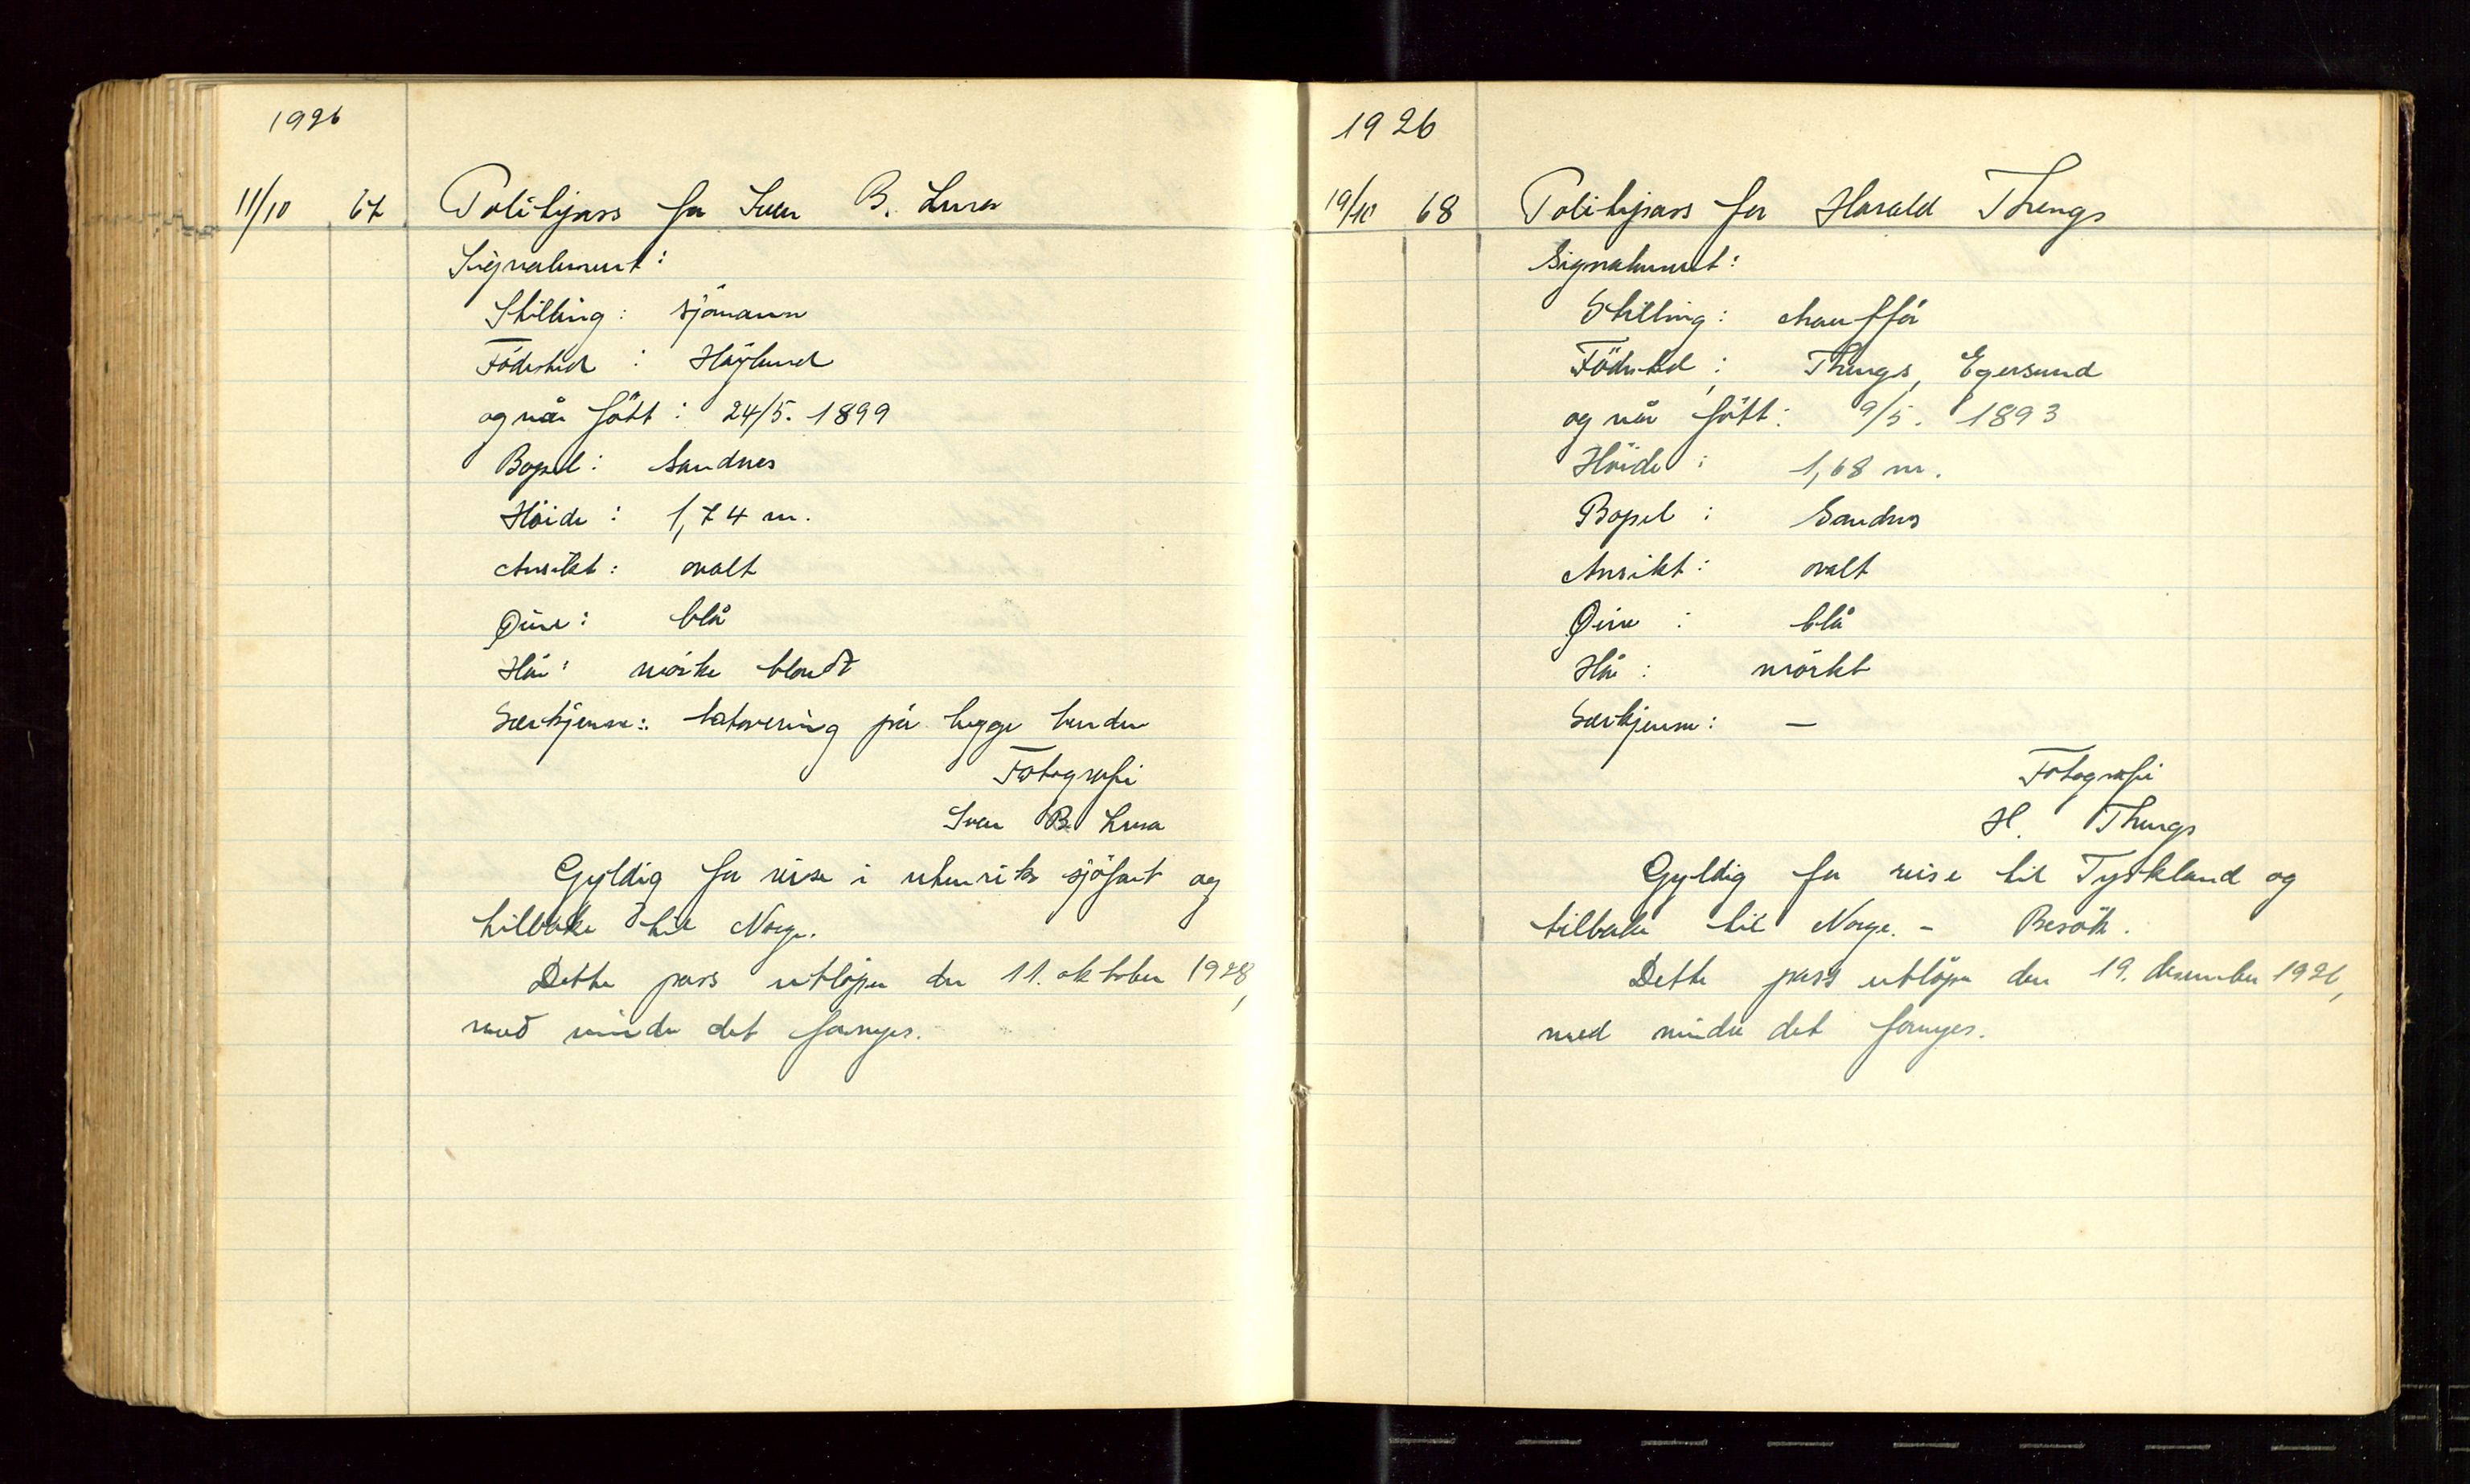 1926
11/10 67 Politipass for Sven B. Lura
Signalement:
Stilling: sjömann
Födested: Höyland
og når fött: 24/5. 1899
Bopel: Sandnes
Höide: 1,74 m.
Ansikt: ovalt
Øine: blå
Hår: mörke blondt
Særkjenne: tatovering på begge hender
Fotografi
Sven B. Lura
Gyldig for reise i utenriks sjöfart og
tilbake til Norge.
Dette pass utlöper den 11. oktober 1928,
med mindre det fornyes.
1926
19/10 68 Politipass for Harald Thengs
Signalement:
Stilling: chaufför
Födested: Thengs, Egersund
og når fött: 9/5. 1893
Höide: 1,68 m.
Bopel: Sandnes
Ansikt: ovalt
Øine: blå
Hår: mörkt
Særkjenne: —
Fotografi
H. Thengs
Gyldig for reise til Tyskland og
tilbake til Norge. - Besök.
Dette pass utlöper den 19. desember 1926,
med mindre det fornyes.